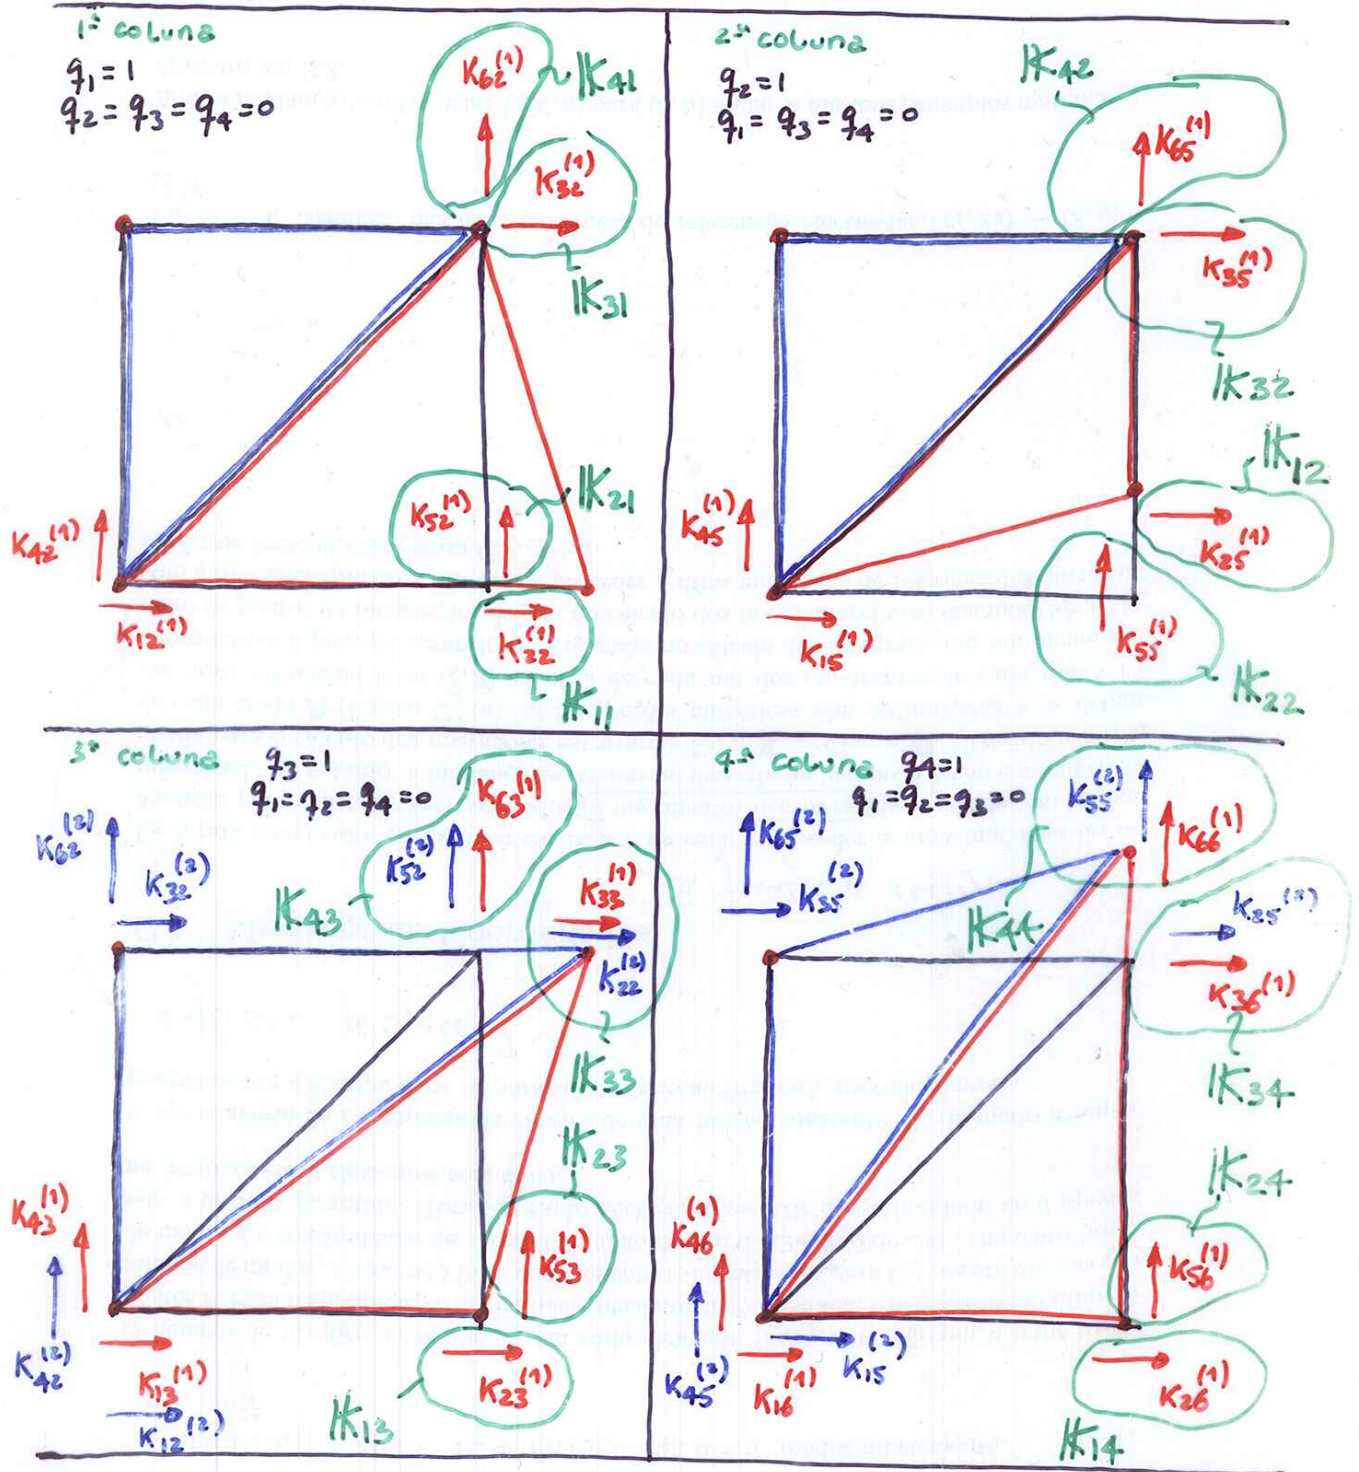 1ª coluna
q1=1
q2=q3=q4=0
K62(1)
K41
K32(1)
K31
K52(1)
K21
K42(1)
K12(1)
K22(1)
K11
2ª coluna
q2=1
q1=q3=q4=0
K42
K65(1)
K35(1)
K32
K12
K45(1)
K25(1)
K15(1)
K55(1)
K22
3ª coluna
q3=1
q1=q2=q4=0
K63(1)
K62(2)
K32(2)
K52(2)
K43
K33(1)
K22(2)
K33
K23
K43(1)
K53(1)
K42(2)
K13(1)
K12(2)
K23(1)
K13
4ª coluna
q4=1
q1=q2=q3=0
K55(2)
K65(2)
K66(1)
K35(2)
K44
K25(2)
K36(1)
K34
K24
K46(1)
K56(1)
K45(2)
K16(1)
K15(2)
K26(1)
K14